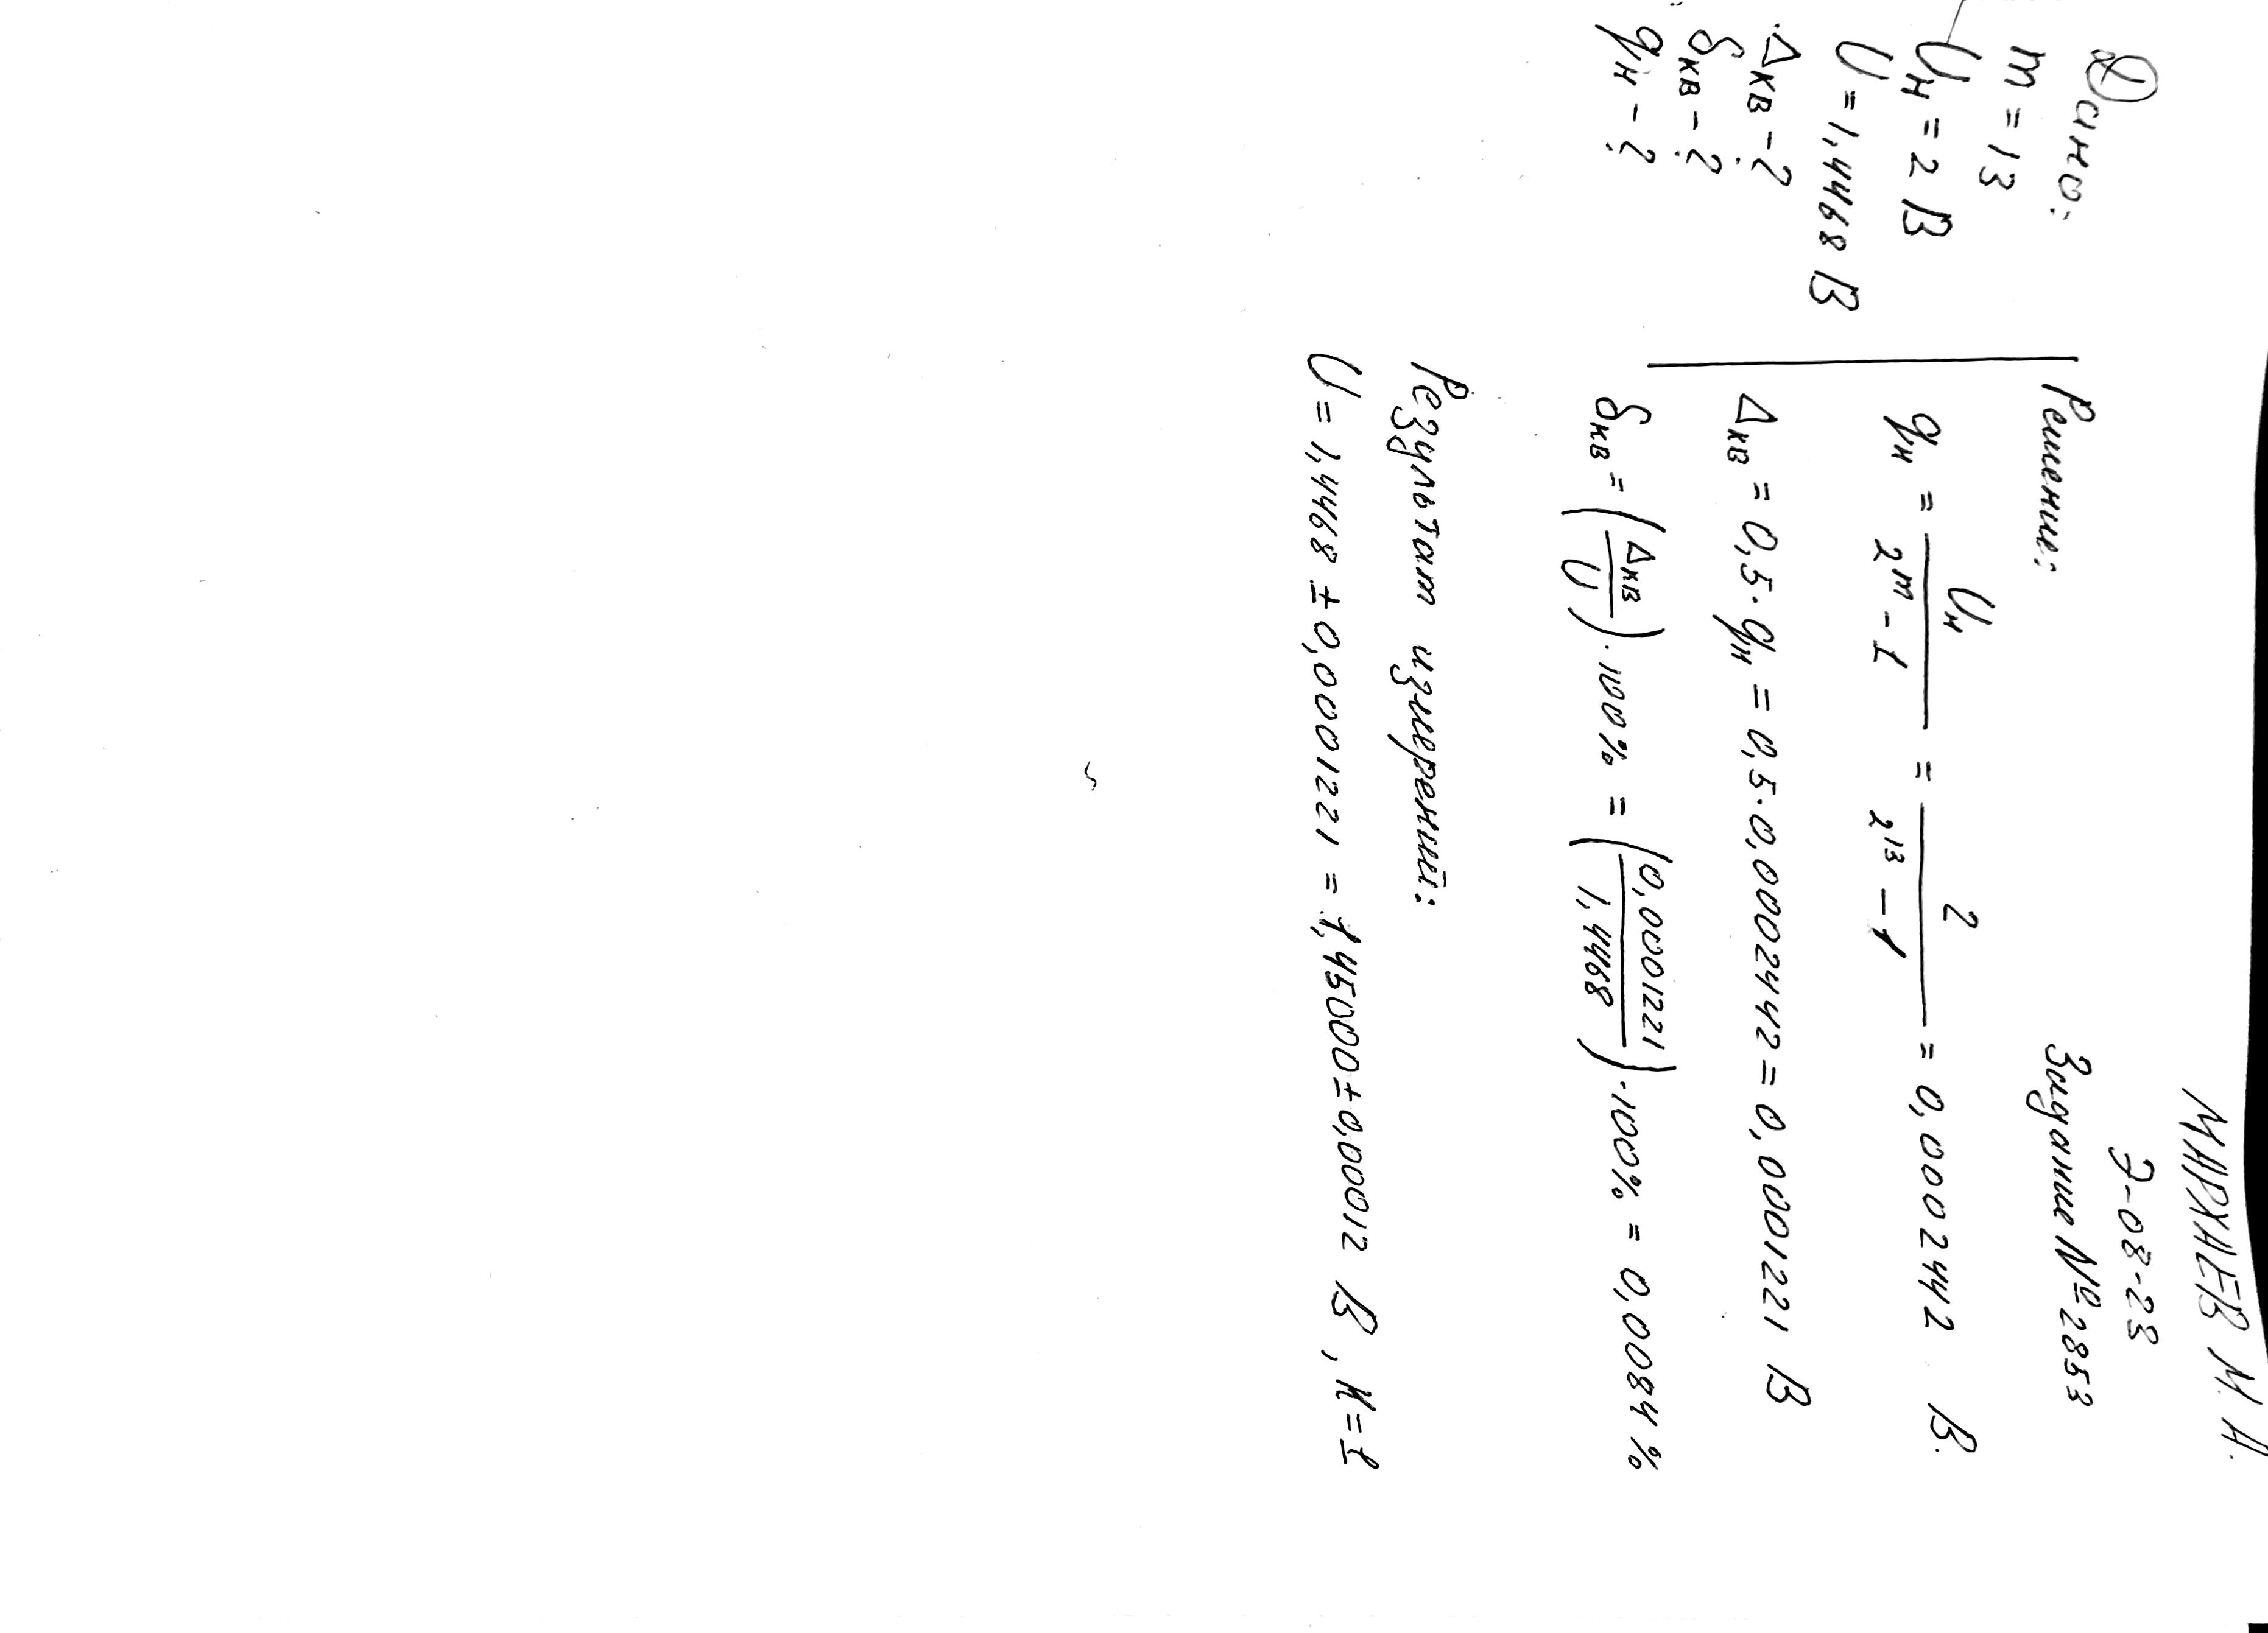 МАРХАЕВ М. Н.
Э-08-28
Задание № 2853
Дано:
m = 13
Uн = 2 В
U = 1,4468 В
Δкв - ?
δкв - ?
qн - ?
Решение:
qн = Uн / (2^m - 1) = 2 / (2^13 - 1) = 0,0002442 В.
Δкв = 0,5 · qн = 0,5 · 0,0002442 = 0,0001221 В
δкв = (Δкв / U) · 100% = (0,0001221 / 1,4468) · 100% = 0,0084 %
Результат измерений:
U = 1,4468 ± 0,0001221 = 1,45000 ± 0,00012 В, К=1